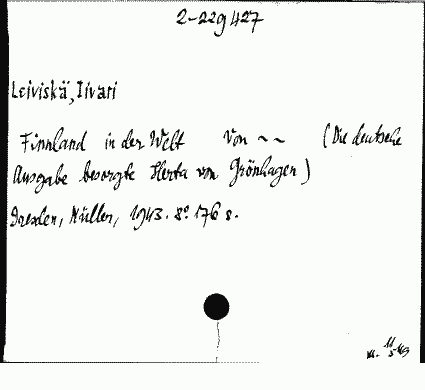 2-229427
Leiviskä, Iivari
Finnland in der Welt von ~ ~ (Die deutsche
Ausgabe besorgte Herta von Grönhagen)
Dresden, Müller, 1943. 8º 176 s.